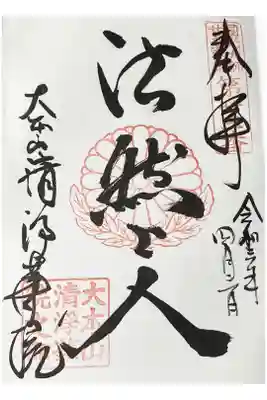 奉拝
令和三年
四月二日
法然上人
大本山清浄華院
大本山
清浄華